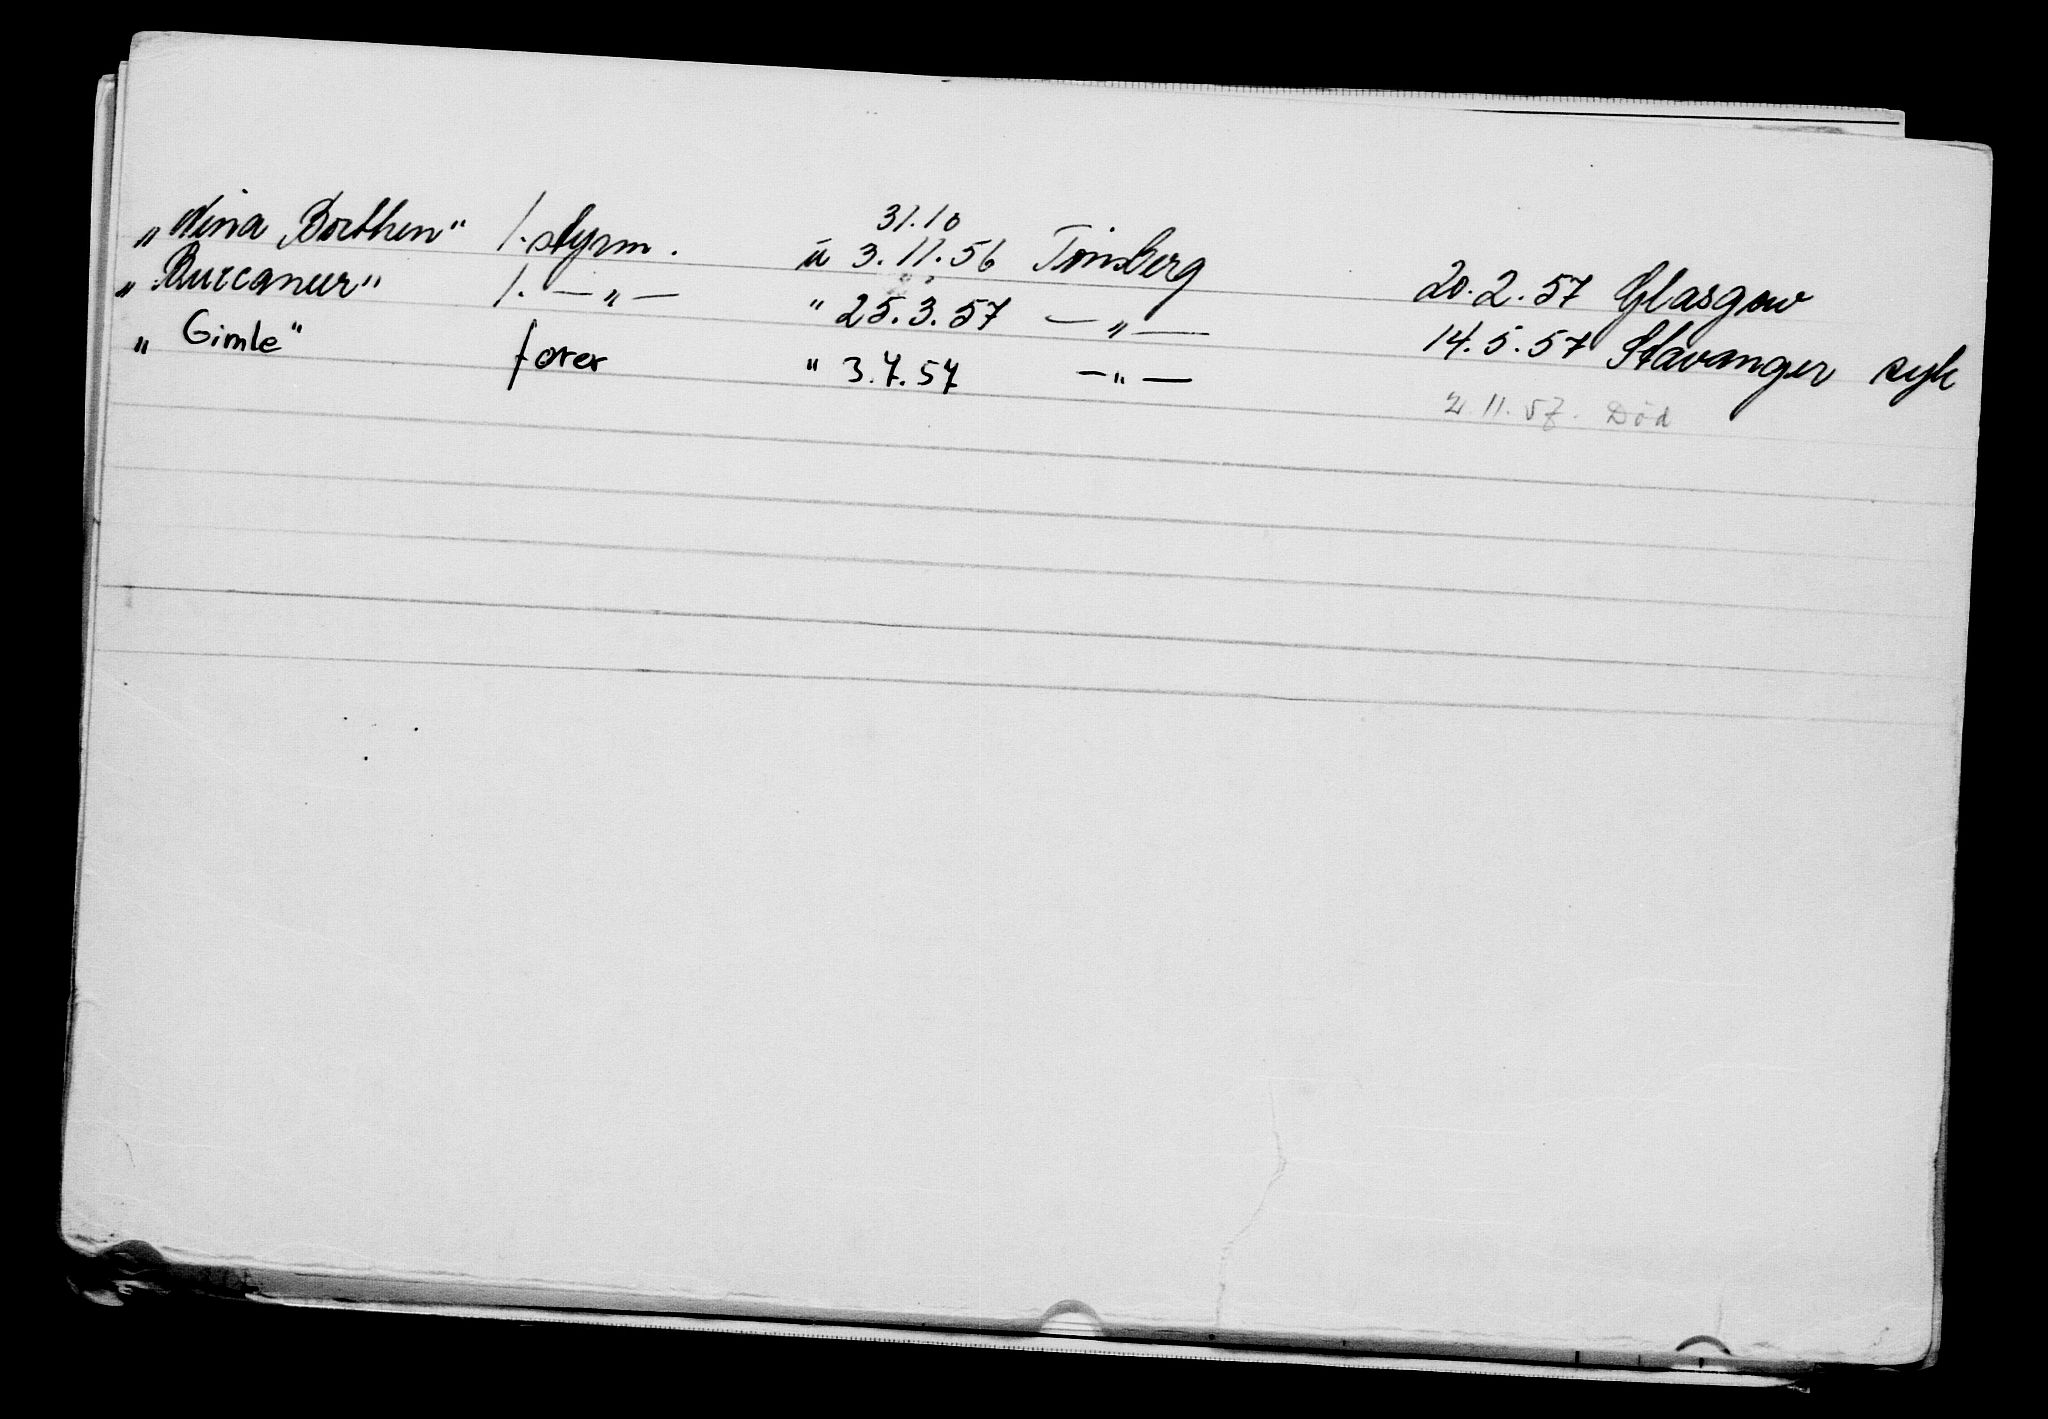 31.10
„Nina Borthen" 1. styrm. u 3.11.56 Tønsberg 20.2.57 Glasgow
„Buccaneer" 1. —„— " 25.3.57 —„— 14.5.57 Stavanger syk
„Gimle" fører " 3.7.57 —„— 2.11.57. Død